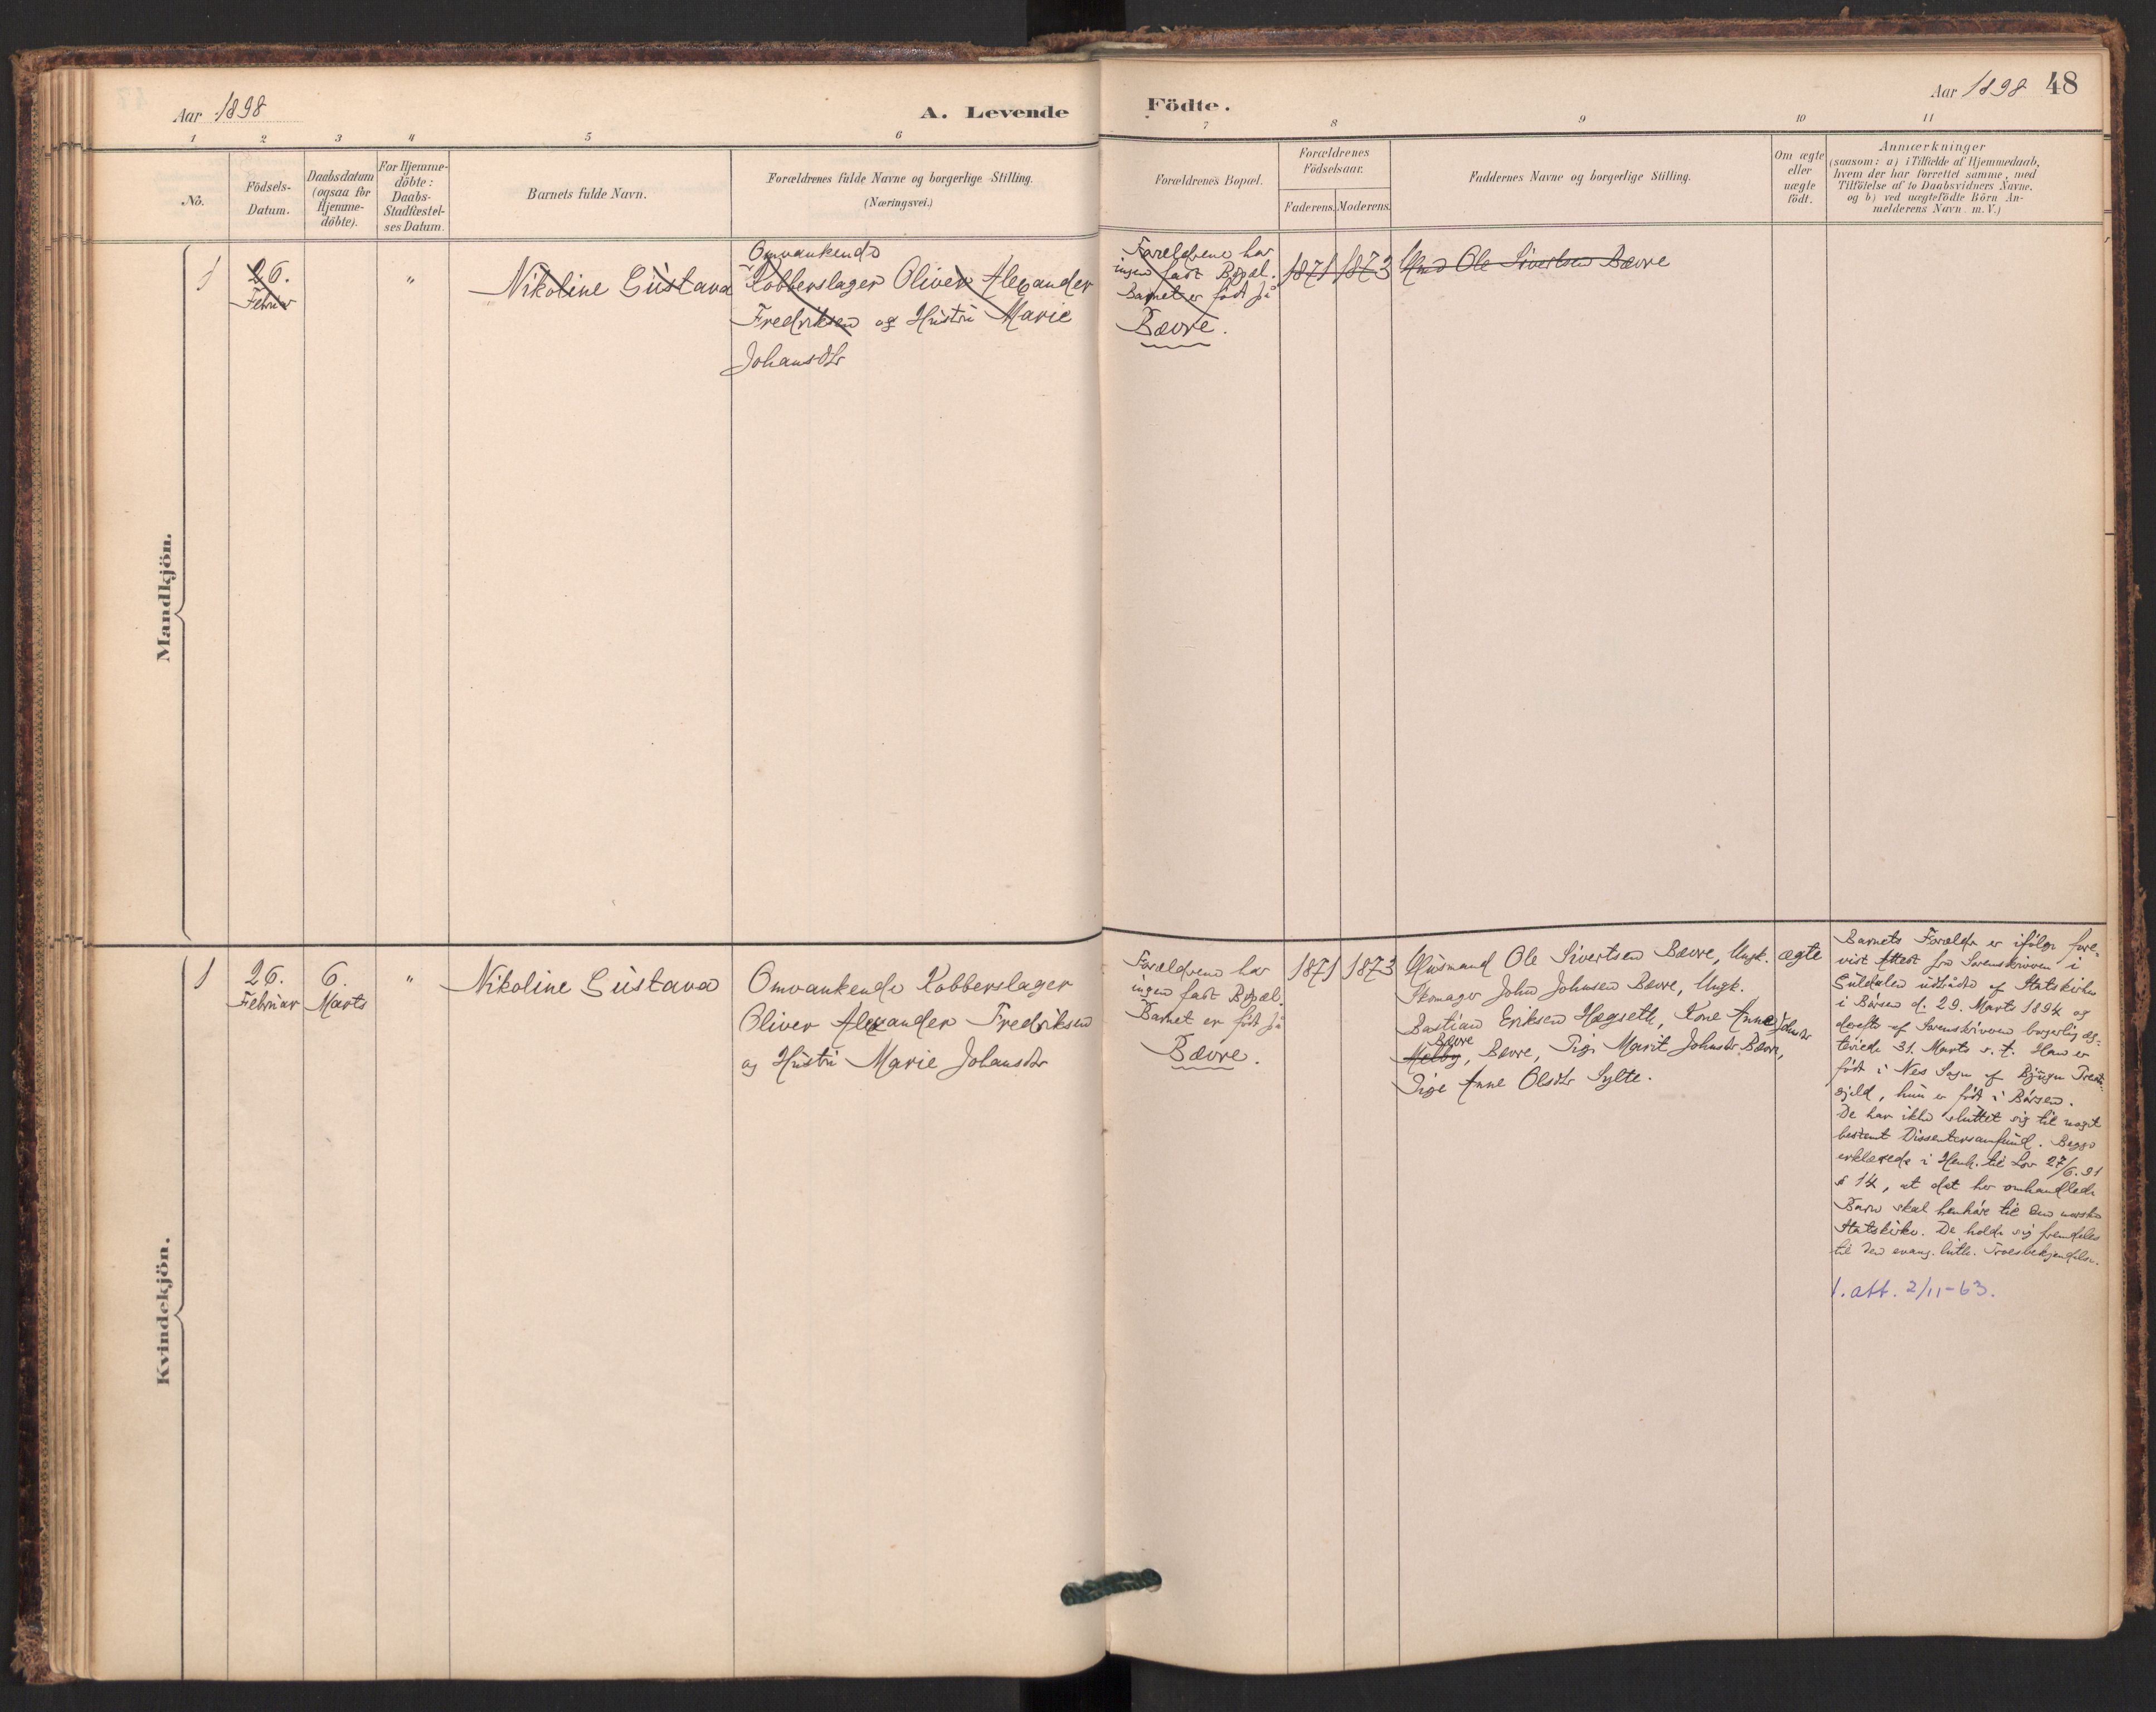 Aar 1898
A. Levende
Födte.
Aar 1898 48
1 2 3 4 5 6 7 8 9 10 11
No.
Födsels-
Datum.
Daabsdatum
(ogsaa for
Hjemme-
döbte).
For Hjemme-
döbte:
Daabs-
Stadfæstel-
ses Datum.
Barnets fulde Navn.
Forældrenes fulde Navne og borgerlige Stilling.
(Næringsvei.)
Forældrenes Bopæl.
Forældrenes
Födselsaar.
Faderens. Moderens.
Faddernes Navne og borgerlige Stilling.
Om ægte
eller
uægte
födt.
Anmærkninger
(saasom: a) i Tilfælde af Hjemmedaab,
hvem der har forrettet samme, med
Tilföielse af to Daabsvidners Navne.
og b) ved uægtefödte Börn An-
melderens Navn m. V.)
Mandkjön.
1
26.
Februar
"
Nikoline Gustava
Omvankende
Kobberslager Oliver Alexander
Fredriksen og Hustru Marie
Johansdtr
Forældrene har
ingen fast Bopæl.
Barnet er født på
Bævre.
1871 1873
Ole Sivertsen Bævre
Kvindekjön.
1
26.
Februar
6.
Marts
"
Nikoline Gustava
Omvankende Kobberslager
Oliver Alexander Fredriksen
og Hustru Marie Johansdtr
Forældrene har
ingen fast Bopæl.
Barnet er født på
Bævre.
1871 1873
Husmand Ole Sivertsen Bævre, Ungk.
Skomager John Johnsen Bævre, Ungk.
Bastian Eriksen Hægseth, Kone Anne Johnsdr
Bævre
Melby, Bævre, Pige Marit Johnsdr Bævre,
Pige Anne Olsdtr Sylte.
ægte
Barnets Forældre er ifølge fore-
vist Attest fra Sorenskriveren i
Guldalen udtrådte af Statskirken
i Børsen d. 29. Marts 1894 og
derefter af Sorenskriveren borgerlig æg-
teviede 31. Marts s. A. Han er
født i Nes Sogn af Bjugn Præste-
gjeld, hun er født i Børsen.
De har ikke sluttet sig til noget
bestemt Dissentersamfund. Begge
erklærede i Henh. til Lov 27/6. 91
§ 14, at det her omhandlede
Barn skal henhøre til den norske
Statskirke. De holde sig fremdeles
til den evang. luth. Troesbekjendelse.
1. att. 2/11-63.